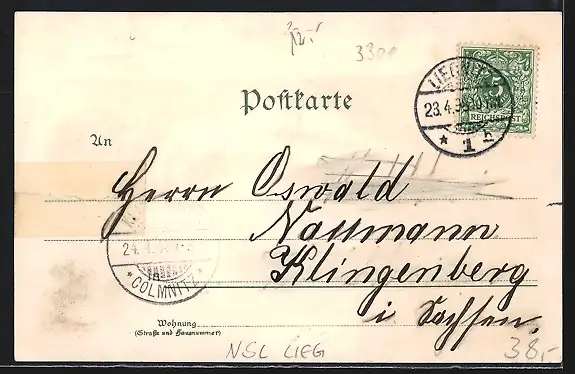 12.-
3300
Postkarte
LIEGNITZ
23.4.99
* 1 h
5
REICHSPOST
An
Herrn Oswald
Naumann
Klingenberg
i Sachsen.
24.4.
* COLMNITZ *
Wohnung
(Straße und Hausnummer)
NSL LIEG
38,-